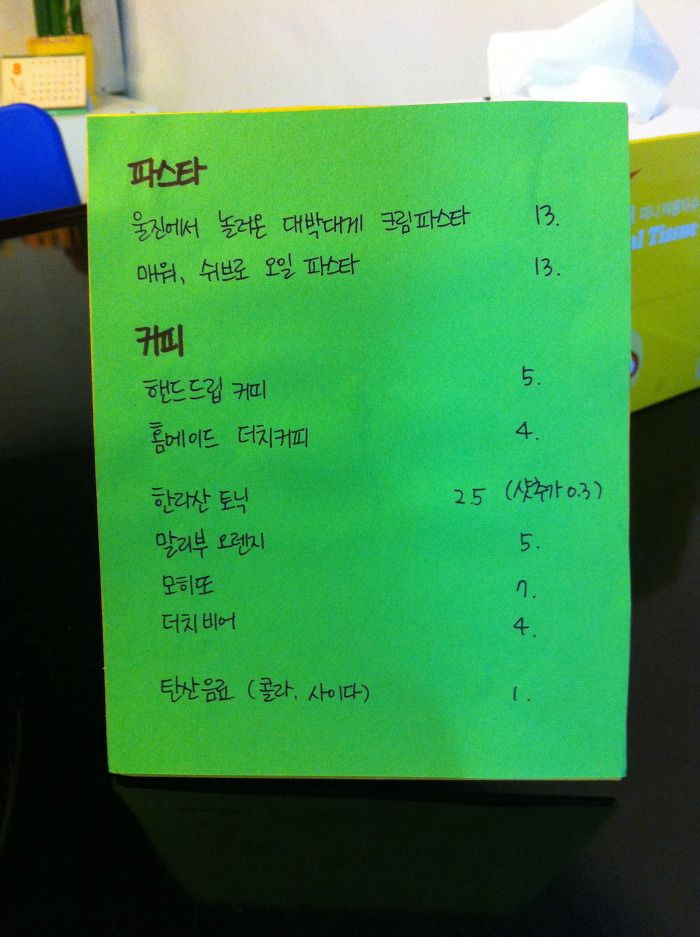 파스타
울진에서 놀러온 대박대게 크림파스타 13.
매워, 쉬브로 오일 파스타 13.
커피
핸드드립 커피 5.
홈메이드 더치커피 4.
한라산 토닉 2.5 (샷추가 0.3)
말리부 오렌지 5.
모히또 7.
더치비어 4.
탄산음료 (콜라, 사이다) 1.
8
미니 미용티슈
al Tissue